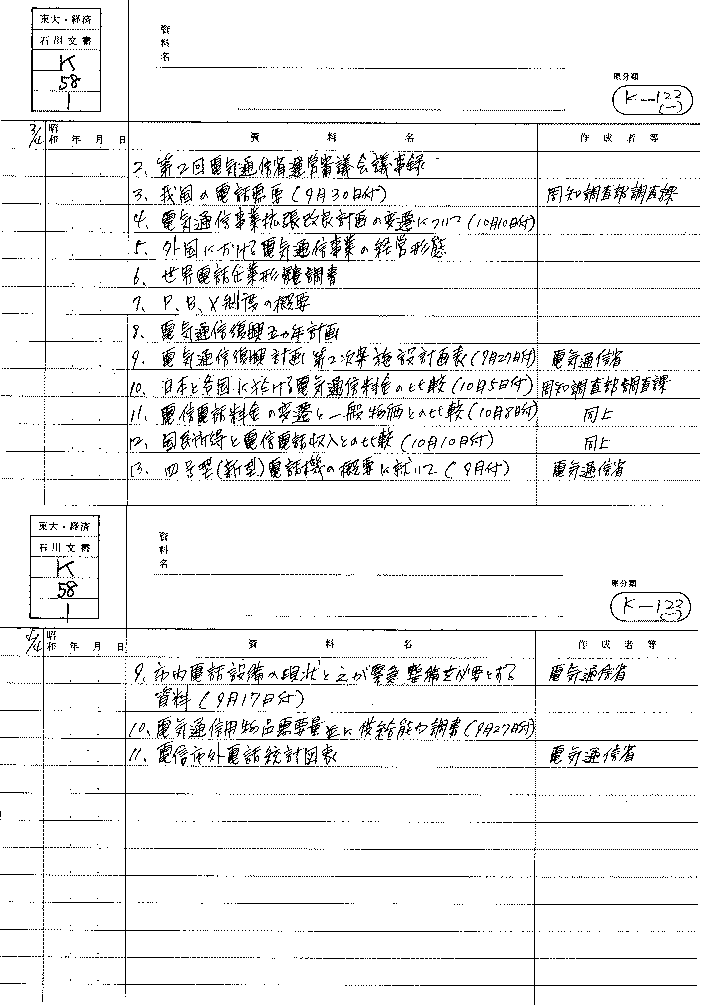 東大・経済
石川文書
K
58
1
資料名
原分類
K-123
(一)
3/4
昭和 年 月 日
資 料 名
作 成 者 等
2. 第2回電気通信省運営審議会議事録
3. 我国の電話需要(9月30日付) 周知調査部調査課
4. 電気通信事業拡張改良計画の変遷について(10月10日付)
5. 外国における電気通信事業の経営形態
6. 世界電話企業形態調書
7. P.B.X制度の概要
8. 電気通信復興五カ年計画
9. 電気通信復興計画第2次実施設計画表(9月27日付) 電気通信省
10. 日本と各国に於ける電気通信料金の比較(10月5日付) 周知調査部調査課
11. 電信電話料金の変遷と一般物価との比較(10月8日付) 同上
12. 国民所得と電信電話収入との比較(10月10日付) 同上
13. 四号型(新型)電話機の概要に就いて(9月付) 電気通信省
東大・経済
石川文書
K
58
1
資料名
原分類
K-123
(一)
/4
昭和 年 月 日
資 料 名
作 成 者 等
9. 市内電話設備の現状と之が緊急整備を必要とする 電気通信省
資料(9月17日付)
10. 電気通信用物品需要量並に供給能力調書(9月27日付)
11. 電信市外電話統計図表 電気通信省